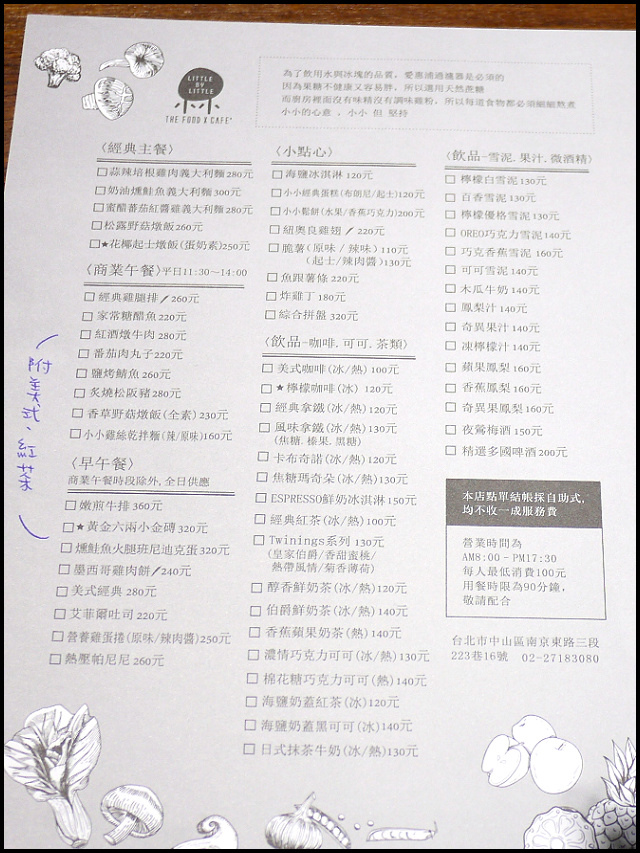 LITTLE
BY
LITTLE
THE FOOD X CAFE'
為了飲用水與冰塊的品質，愛惠浦過濾器是必須的
因為果糖不健康又容易胖，所以選用天然蔗糖
而廚房裡面沒有味精沒有調味雞粉，所以每道食物都必須細細熬煮
小小的心意，小小 但 堅持
〈經典主餐〉
□蒜辣培根雞肉義大利麵280元
□奶油燻鮭魚義大利麵300元
□蜜醋蕃茄紅醬雞義大利麵280元
□松露野菇燉飯260元
□★花椰起士燉飯(蛋奶素)250元
〈商業午餐〉平日11:30~14:00
□經典雞腿排 260元
□家常糖醋魚220元
□紅酒燉牛肉 280元
□番茄肉丸子220元
□鹽烤鯖魚 260元
□炙燒松阪豬280元
□香草野菇燉飯(全素)230元
□小小雞絲乾拌麵(辣/原味)160元
附美式、紅茶
〈早午餐〉
商業午餐時段除外,全日供應
□嫩煎牛排360元
□★黃金六兩小金磚320元
□燻鮭魚火腿班尼迪克蛋320元
□墨西哥雞肉餅 240元
□美式經典 280元
□艾菲爾吐司 220元
□營養雞蛋捲(原味/辣肉醬)250元
□熱壓帕尼尼 260元
〈小點心〉
□海鹽冰淇淋 120元
□小小經典蛋糕(布朗尼/起士)120元
□小小鬆餅(水果/香蕉巧克力)200元
□紐奧良雞翅 220元
□脆薯(原味 / 辣味)110元
(起士/辣肉醬)130元
□魚跟薯條 220元
□炸雞丁 180元
□綜合拼盤 320元
〈飲品-咖啡.可可.茶類〉
□美式咖啡(冰/熱) 100元
□★檸檬咖啡(冰) 120元
□經典拿鐵(冰/熱)120元
□風味拿鐵(冰/熱)130元
(焦糖.榛果.黑糖)
□卡布奇諾(冰/熱)120元
□焦糖瑪奇朵(冰/熱)130元
□ESPRESSO鮮奶冰淇淋150元
□經典紅茶(冰/熱)100元
□Twinings系列 130元
(皇家伯爵/香甜蜜桃/
熱帶風情/菊香薄荷)
□醇香鮮奶茶(冰/熱)120元
□伯爵鮮奶茶(冰/熱) 140元
□香蕉蘋果奶茶(熱)140元
□濃情巧克力可可(冰/熱)130元
□棉花糖巧克力可可(熱)140元
□海鹽奶蓋紅茶(冰)120元
□海鹽奶蓋黑可可(冰)140元
□日式抹茶牛奶(冰/熱)130元
〈飲品-雪泥.果汁.微酒精〉
□檸檬白雪泥130元
□百香雪泥130元
□檸檬優格雪泥130元
□OREO巧克力雪泥140元
□巧克香蕉雪泥 160元
□可可雪泥 140元
□木瓜牛奶 140元
□鳳梨汁 140元
□奇異果汁 140元
□凍檸檬汁 140元
□蘋果鳳梨 160元
□香蕉鳳梨 160元
□奇異果鳳梨160元
□夜鶯梅酒 150元
□精選多國啤酒200元
本店點單結帳採自助式,
均不收一成服務費
營業時間為
AM8:00-PM17:30
每人最低消費100元
用餐時限為90分鐘,
敬請配合
台北市中山區南京東路三段
223巷16號 02-27183080